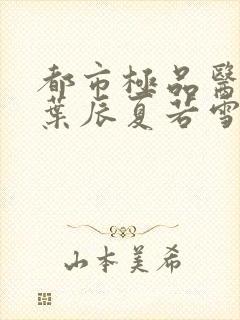 都市極品醫
葉辰夏若雪
山本美希